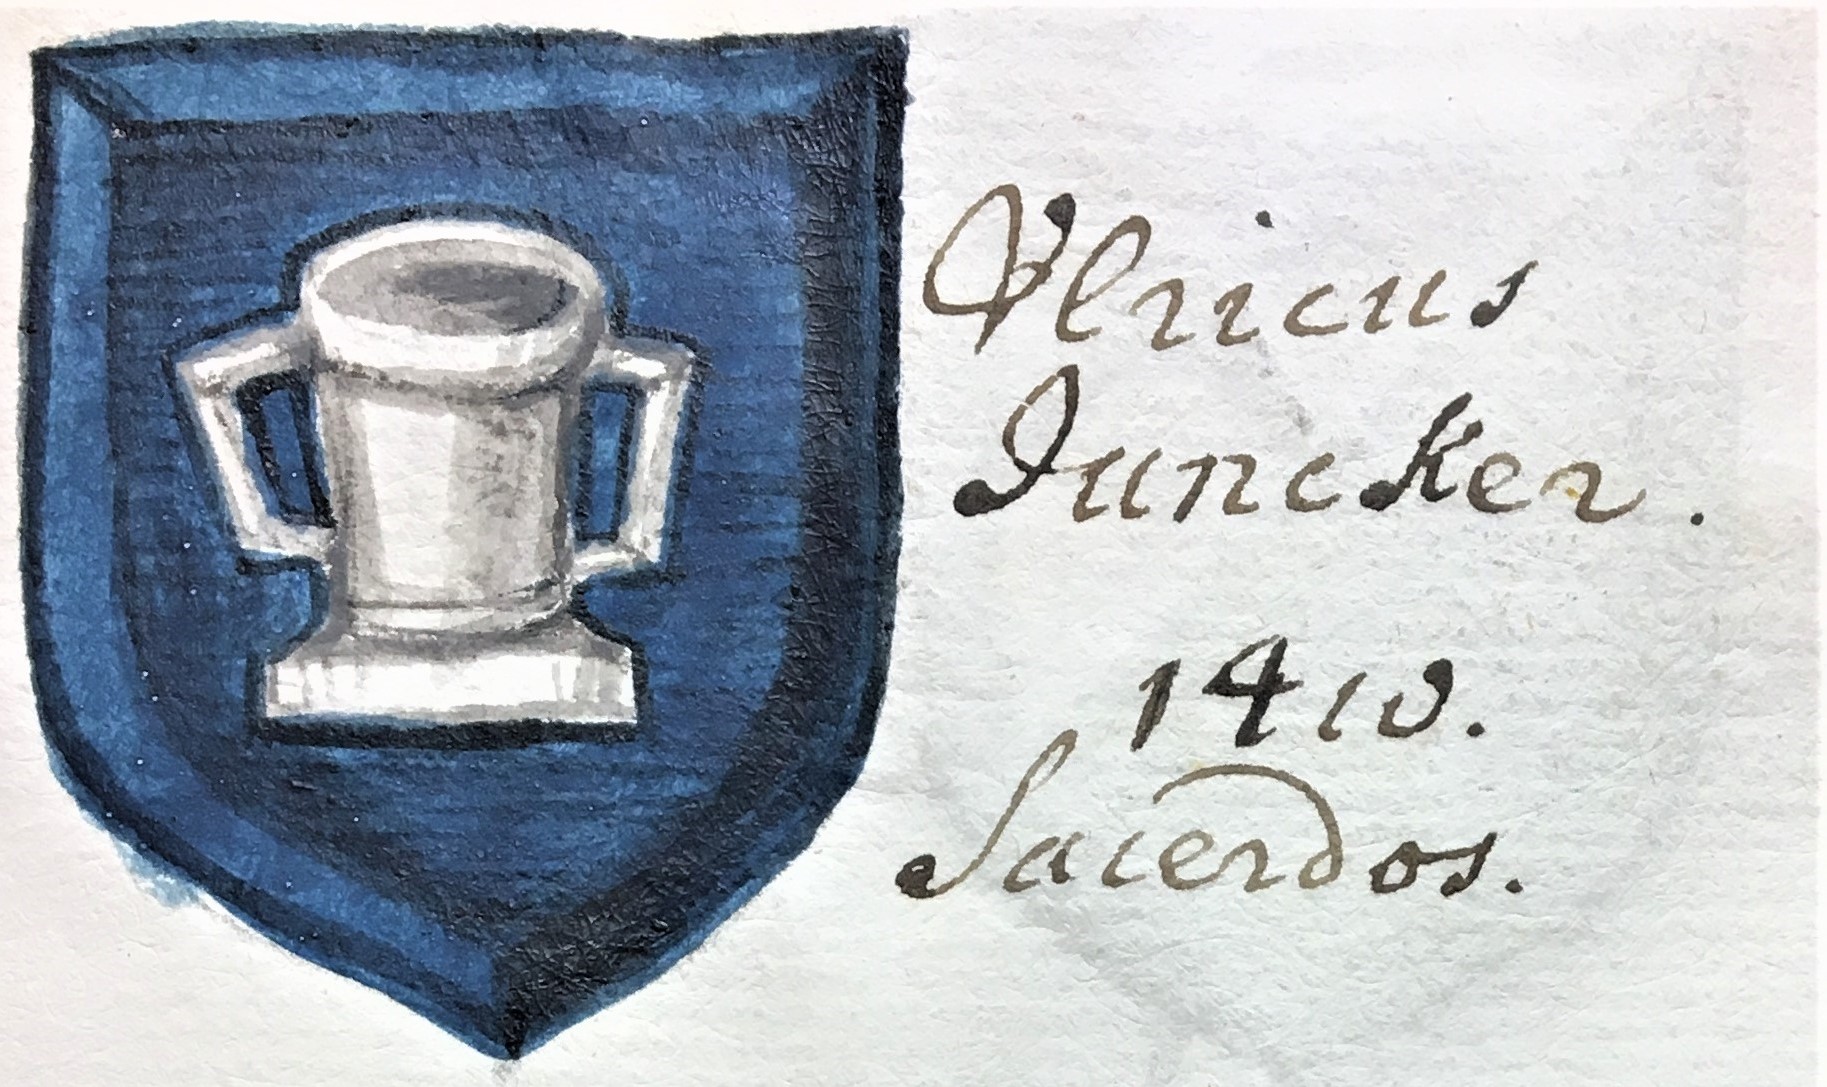 Vlricus
Iuncker.
1410.
Sacerdos.